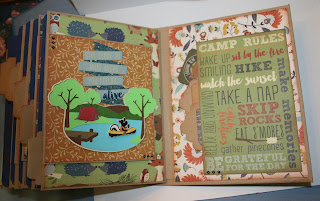 alive
CAMP RULES
WAKE UP sit by the fire
SMILING HIKE
watch the sunset
TAKE A NAP
SKIP
ROCKS
EAT S'MORES
gather pinecones
BE GRATEFUL
FOR THE DAY
make memories